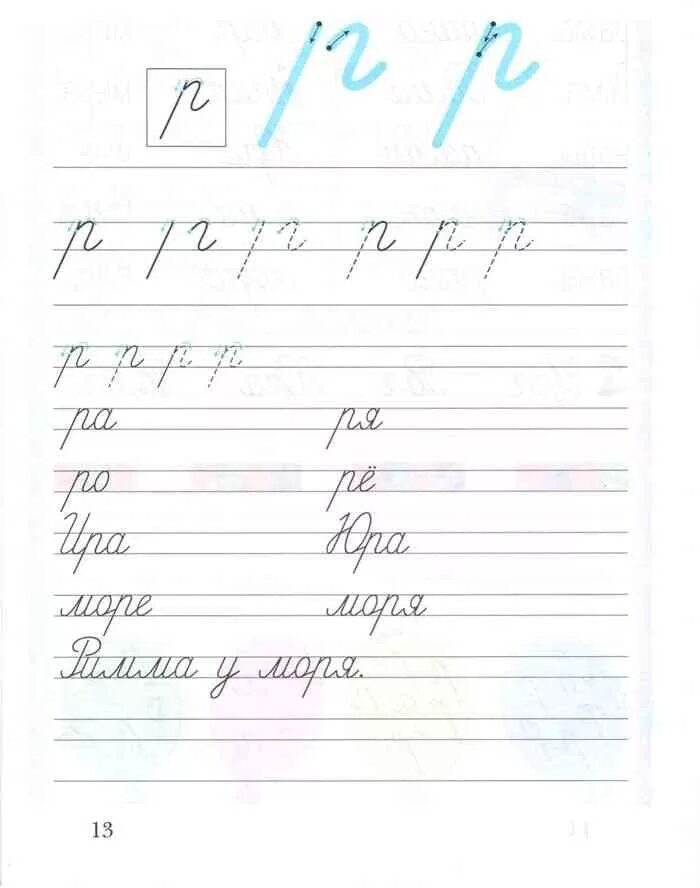 р р р
р р р р р р
р р р р
ра ря
ро рё
Ира Юра
море моря
Римма у моря.
13